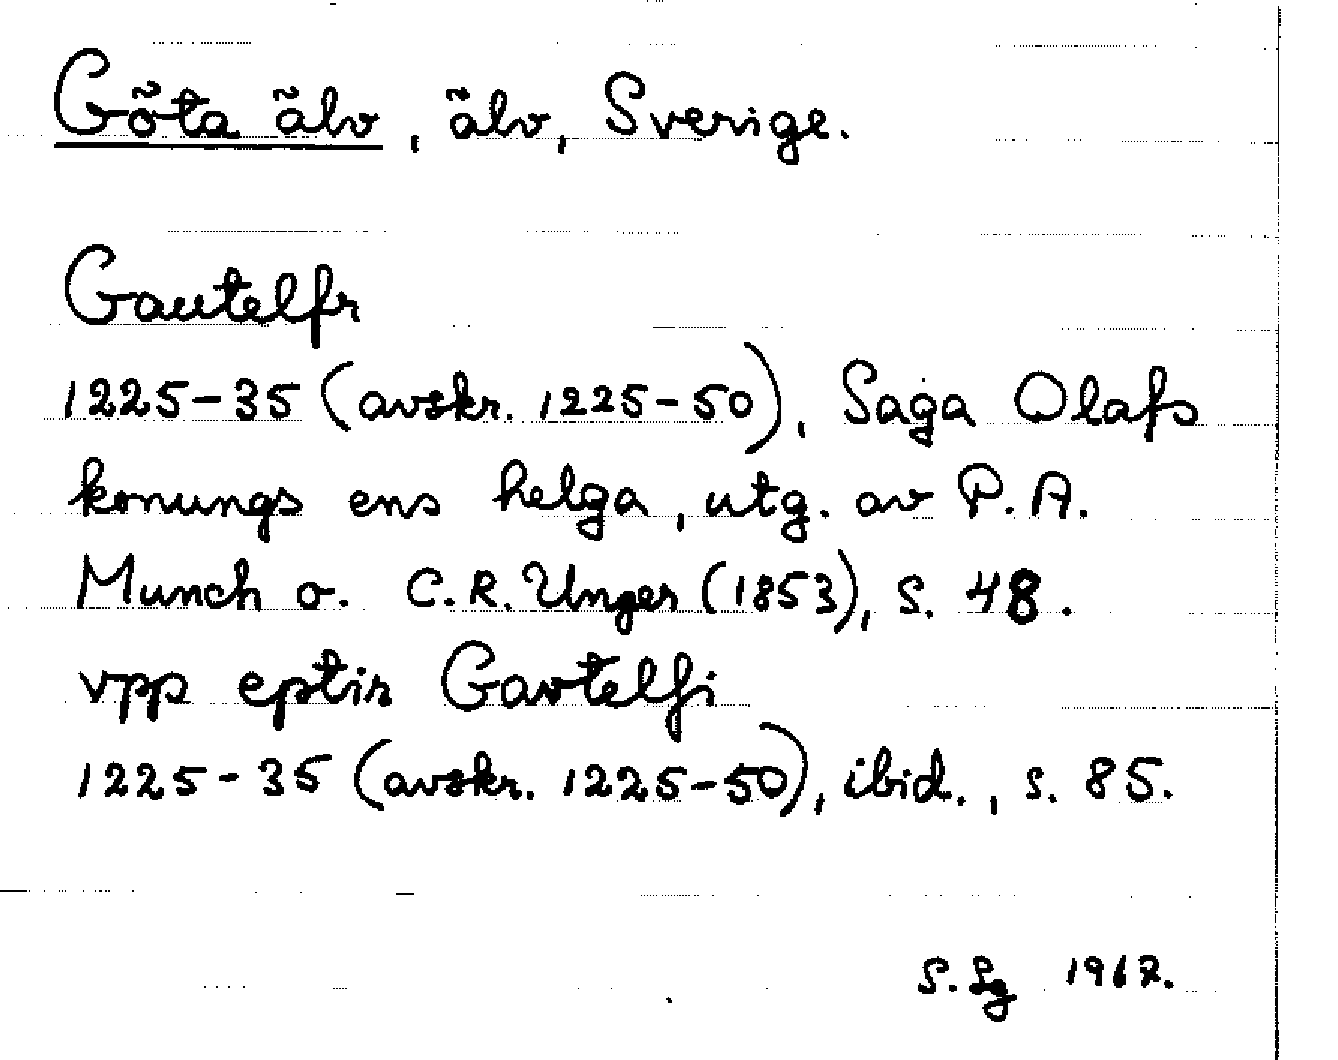 Göta älv, älv, Sverige.
Gautelfr
1225-35 (avskr. 1225-50), Saga Olafs
konungs ens helga, utg. av P.A.
Munch o. C.R. Unger (1853), s. 48.
vpp eptir Gavtelfi
1225-35 (avskr. 1225-50), ibid., s. 85.
S. Sg 1967.